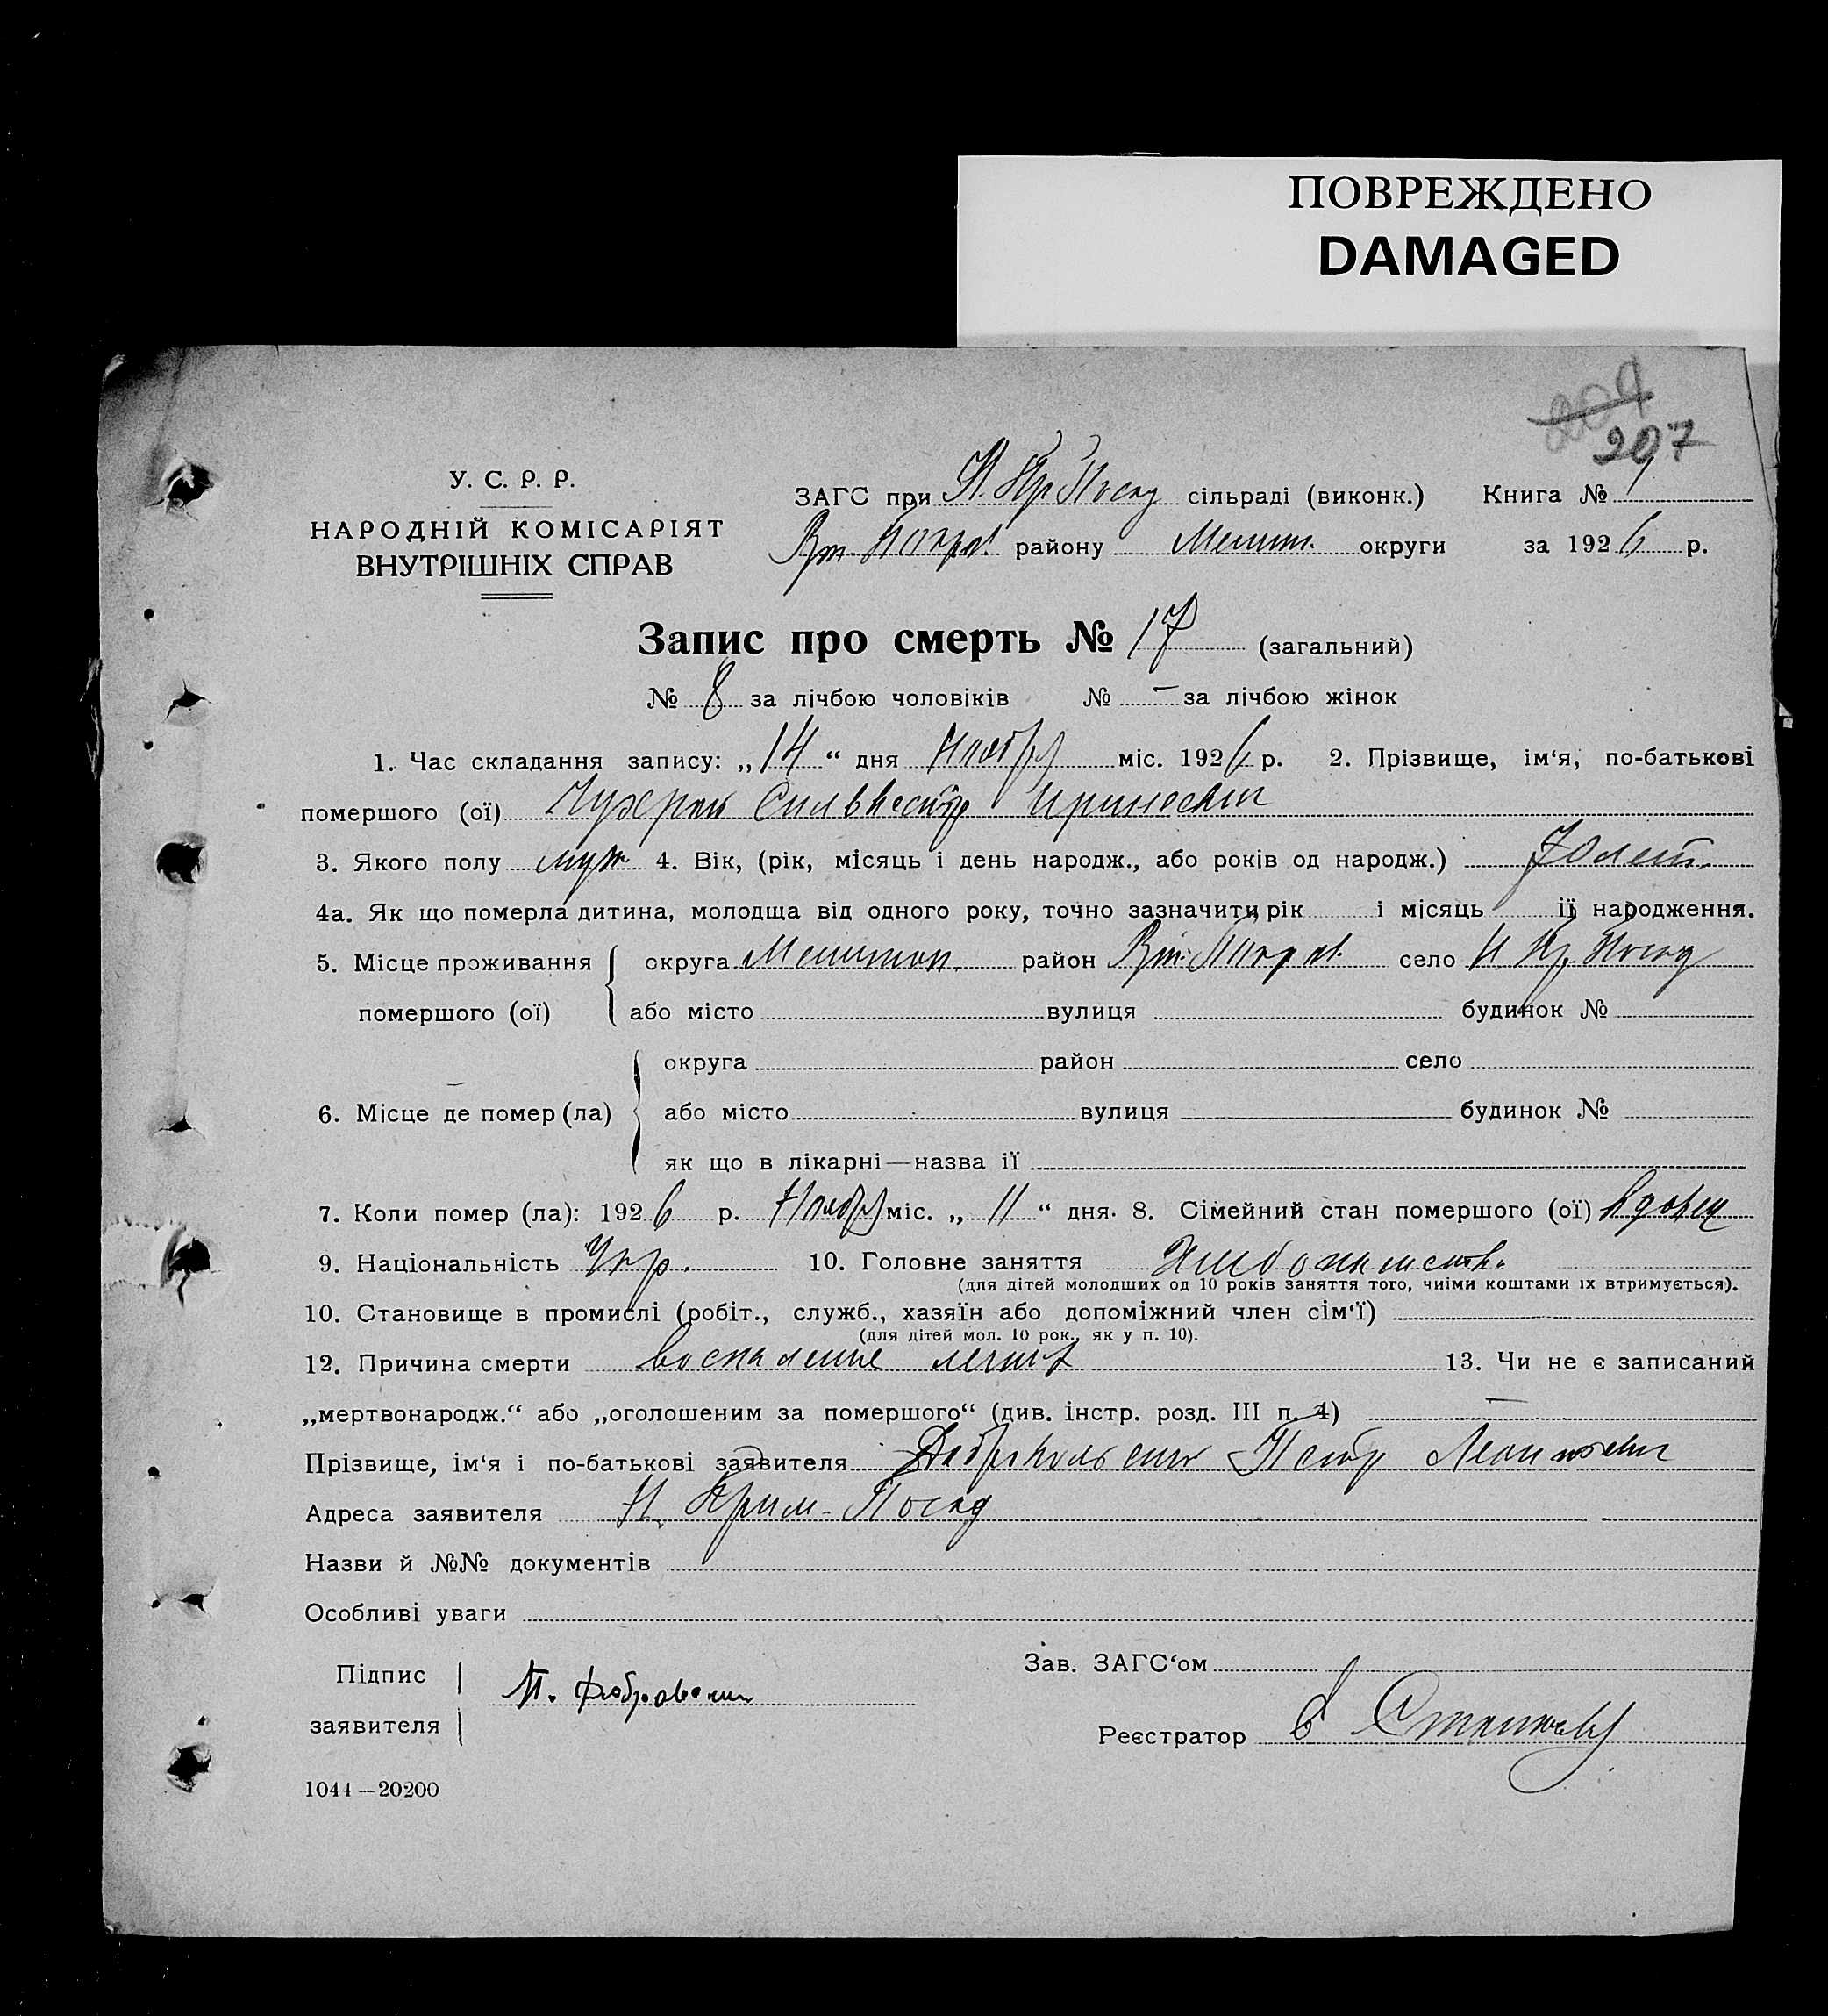 ПОВРЕЖДЕНО
DAMAGED
207
У. С. Р. Р.
НАРОДНІЙ КОМІСАРІЯТ
ВНУТРІШНІХ СПРАВ
ЗАГС при Н. Кр. Посад сільраді (виконк.) Книга № 1
Покров. району Мелит. округи за 1926 р.
Запис про смерть № 17 (загальний)
№ 8 за лічбою чоловіків № — за лічбою жінок
1. Час складання запису: „14“ дня Ноября міс. 1926 р. 2. Прізвище, ім‘я, по-батькові
помершого (ої) Сильвестр
3. Якого полу муж. 4. Вік, (рік, місяць і день народж., або років од народж.) 70 лет.
4а. Як що померла дитина, молодща від одного року, точно зазначити рік і місяць ії народження.
5. Місце проживання помершого (ої) округа Мелитоп. район Покров. село Н. Кр. Посад
або місто вулиця будинок №
6. Місце де помер (ла) округа район село
або місто вулиця будинок №
як що в лікарні—назва ії
7. Коли помер (ла): 1926 р. Ноября міс. „11“ дня. 8. Сімейний стан помершого (ої) вдовец
9. Національність Укр. 10. Головне заняття Хлебопашеств.
(для дітей молодших од 10 років заняття того, чиїми коштами їх втримується).
10. Становище в промислі (робіт., служб., хазяїн або допоміжний член сім‘ї)
(для дітей мол. 10 рок., як у п. 10).
12. Причина смерти воспаление легких 13. Чи не є записаний
„мертвонародж.“ або „оголошеним за помершого“ (див. інстр. розд. III п. 4) —
Прізвище, ім‘я і по-батькові заявителя Петр
Адреса заявителя Н. Крым-Посад
Назви й №№ документів
Особливі уваги
Підпис заявителя П.
Зав. ЗАГС‘ом
Реєстратор
1044—20200